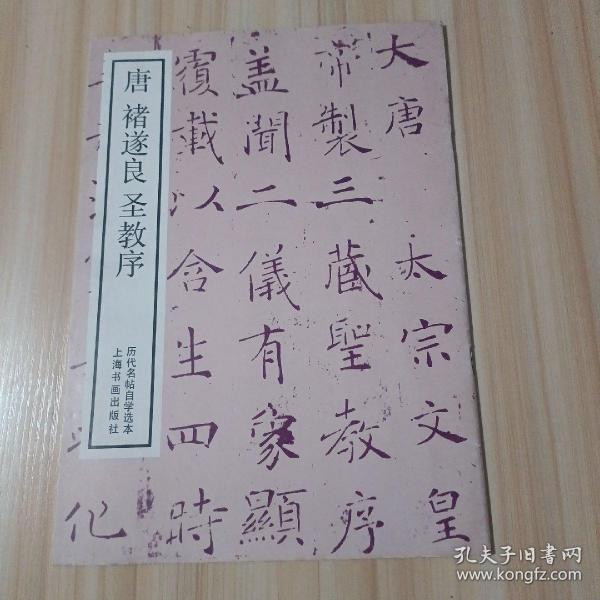 唐 褚遂良 圣教序
历代名帖自学选本
上海书画出版社
大唐太宗文皇
帝製三藏聖教序
盖聞二儀有象顯
覆載以含生四時
化
孔夫子旧书网
www.kongfz.com